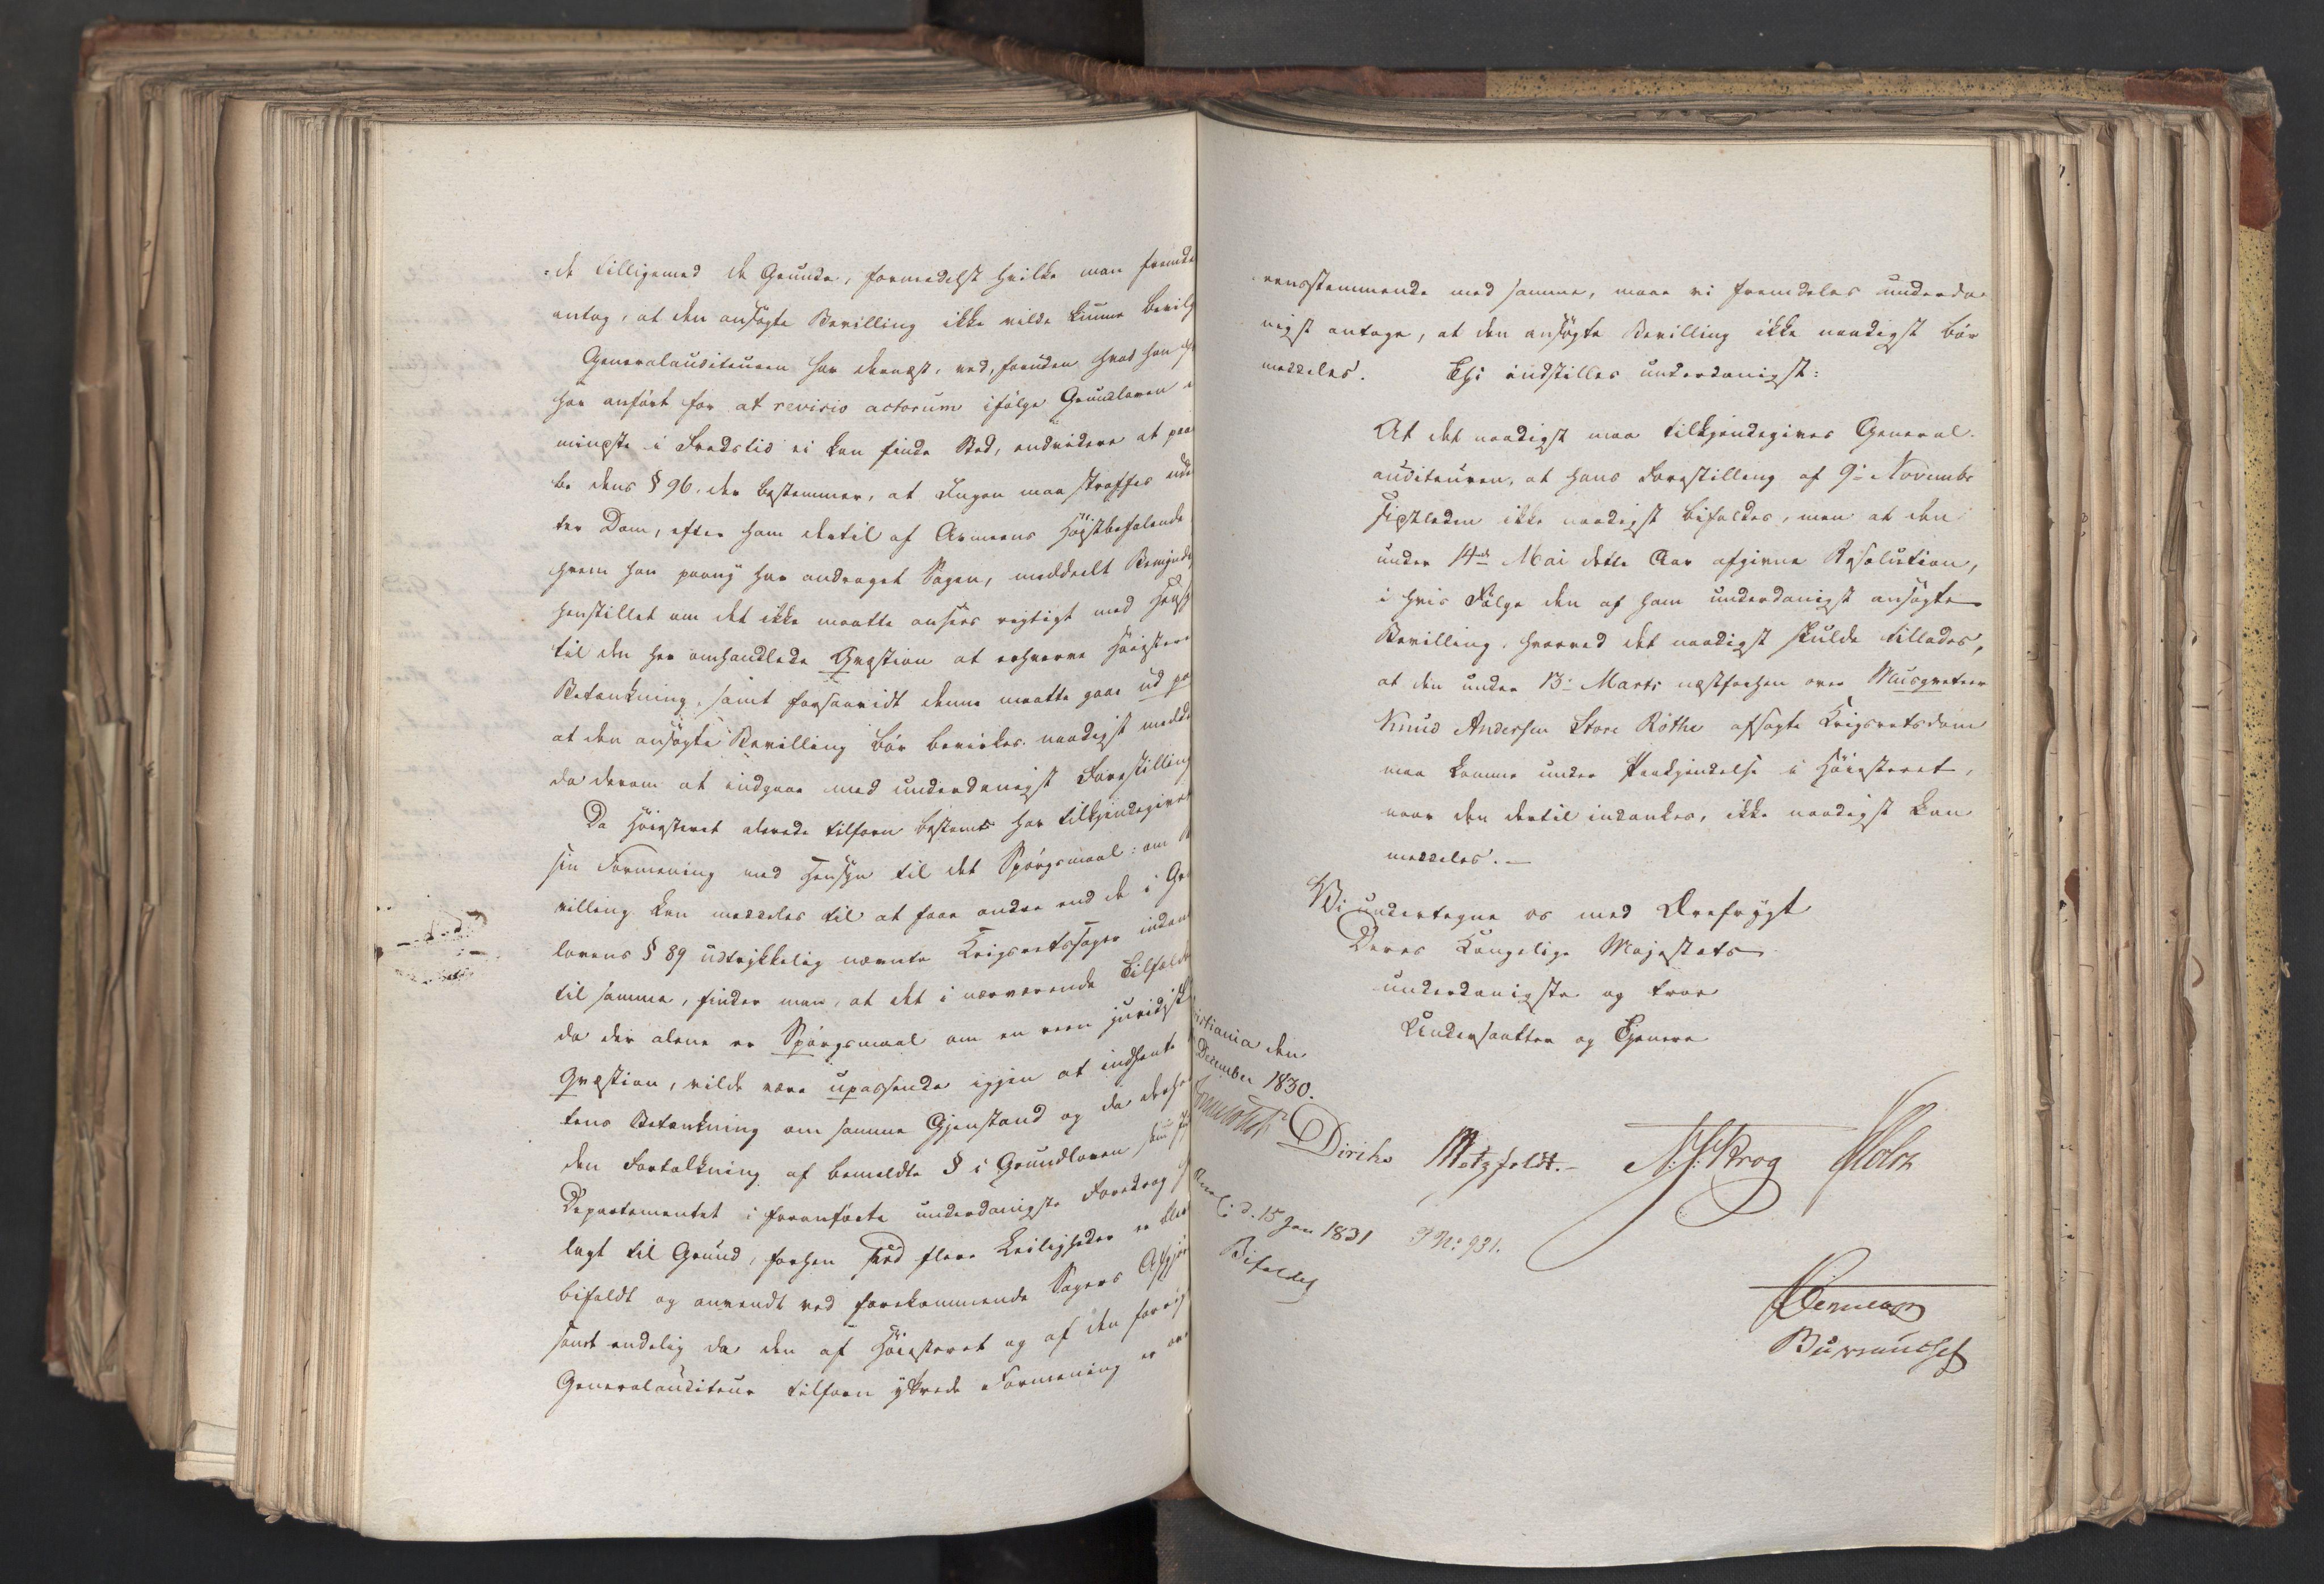 de tilligemed de Grunde, formedelst hvilke man
antog, at den ansøgte Bevilling ikke vilde kunne
Generalauditeuren har dernæst, ved, foruden hvad han
har anført for at revisio actorum ifølge Grundloven
mindste i Fredstid ei kan finde Sted, endvidere at
be dens § 96. der bestemmer, at Ingen maa straffes
ter Dom, efter ham dertil af Armeens Høistbefalende
hvem han paany har andraget Sagen, meddeelt
henstillet om det ikke maatte ansees rigtigt med
til den her omhandlede Qvæstion at erhverve
Betænkning, samt forsaavidt denne maatte gaae ud
at den ansøgte Bevilling bør bevirkes naadigst
da derom at indgaae med underdanigst Forestilling
Da Høiesteret alerede tilforn bestemt har
sin Formening med Hensyn til det Spørgsmaal: om
villing kan meddeles til at faae andre end de i
lovens § 89 udtrykkelig nævnte Krigsretssager
til samme, finder man, at det i nærværende
da der alene er Spørgsmaal om en reen juridisk
Qvæstion, vilde være upassende igjen at indhente
tens Betænkning om samme Gjenstand og da
den Fortolkning af bemeldte § i Grundloven
Departementet i foranførte underdanigste Foredrag
lagt til Grund, forhen ved flere Leiligheder er
bifaldt og anvendt ved forekommende Sagers
samt endelig da den af Høiesteret og af den
Generalauditeur tilforn yttrede Formening er
eensstemmende med samme, maae vi fremdeles underda
nigst antage, at den ansøgte Bevilling ikke naadigst bør
meddeles. Thi indstilles underdanigst:
At det naadigst maa tilkjendegives General-
auditeuren, at hans Forestilling af 9de Novembr
sidstleden ikke naadigst bifaldes, men at den
under 14de Mai dette Aar afgivne Resolution,
i hvis Følge den af ham underdanigst ansøgte
Bevilling, hvorved det naadigst skulde tillades,
at den under 13de Marts næstforhen over Musqveteer
Knud Andersen Store Röthe afsagte Krigsretsdom
maa komme under Paakjendelse i Høiesteret,
naar den dertil indankes, ikke naadigst kan
meddeles.
Vi undertegne os med Ærefrygt
Deres Kongelige Majestæts
underdanigste og troe
Undersaatter og Tjenere
den
December 1830.
Diriks Motzfeldt. N. J. Krog Holst
d. 15 Jan 1831 J No: 931.
Bifaldes